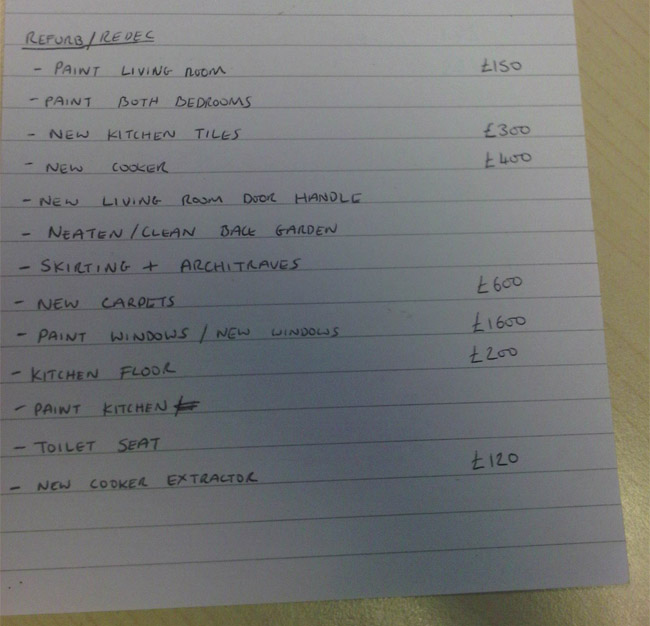 REFURB/REDEC
- PAINT LIVING ROOM £150
- PAINT BOTH BEDROOMS
- NEW KITCHEN TILES £300
- NEW COOKER £400
- NEW LIVING ROOM DOOR HANDLE
- NEATEN/CLEAN BACK GARDEN
- SKIRTING + ARCHITRAVES
- NEW CARPETS £600
- PAINT WINDOWS / NEW WINDOWS £1600
- KITCHEN FLOOR £200
- PAINT KITCHEN
- TOILET SEAT
- NEW COOKER EXTRACTOR £120